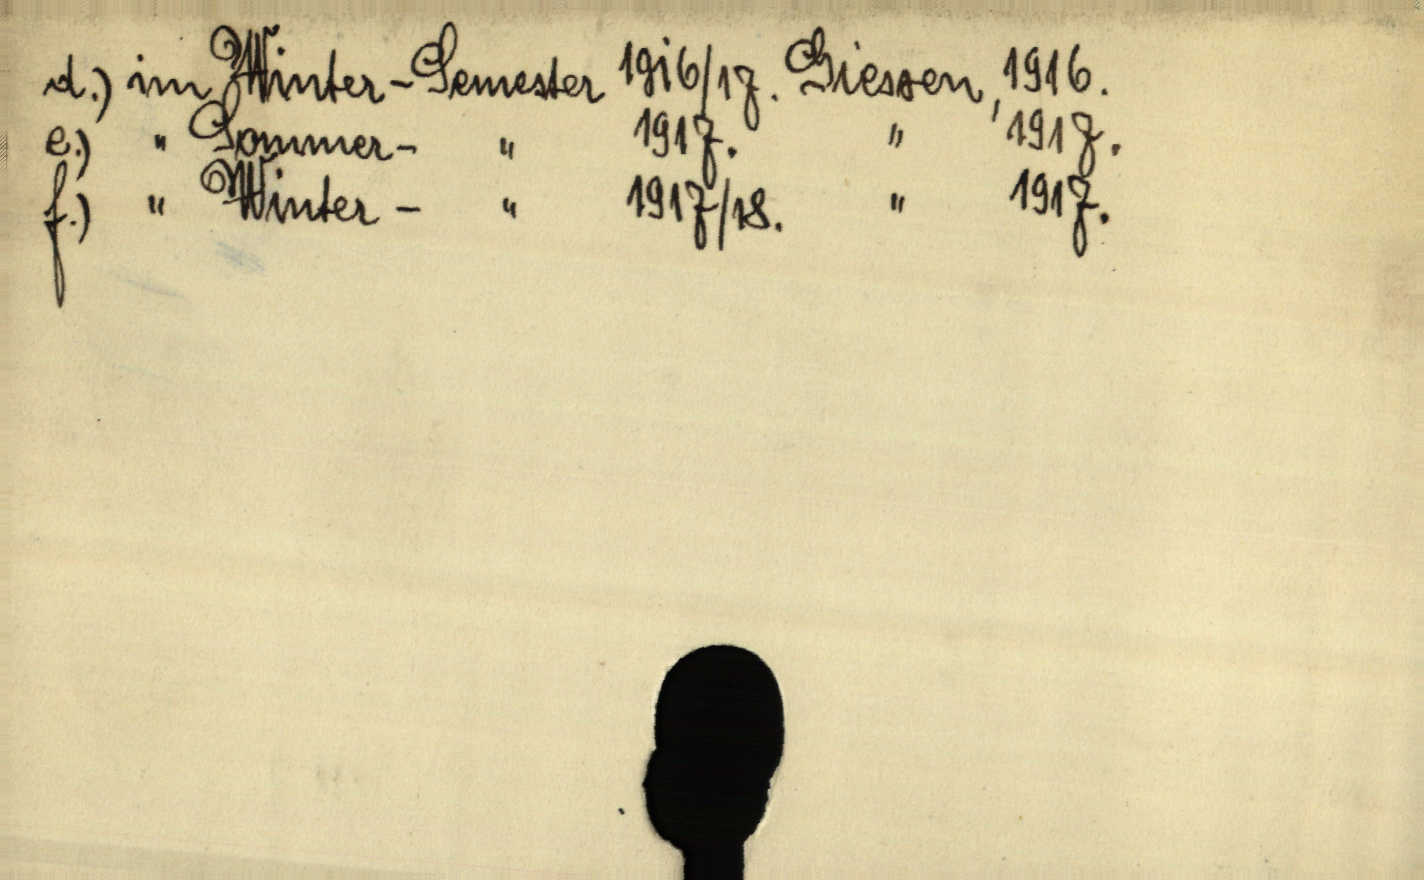 d.) im Winter-Semester 1916/17. Giessen, 1916.
e.) " Sommer- " 1917. " 1917.
f.) " Winter- " 1917/18. " 1917.